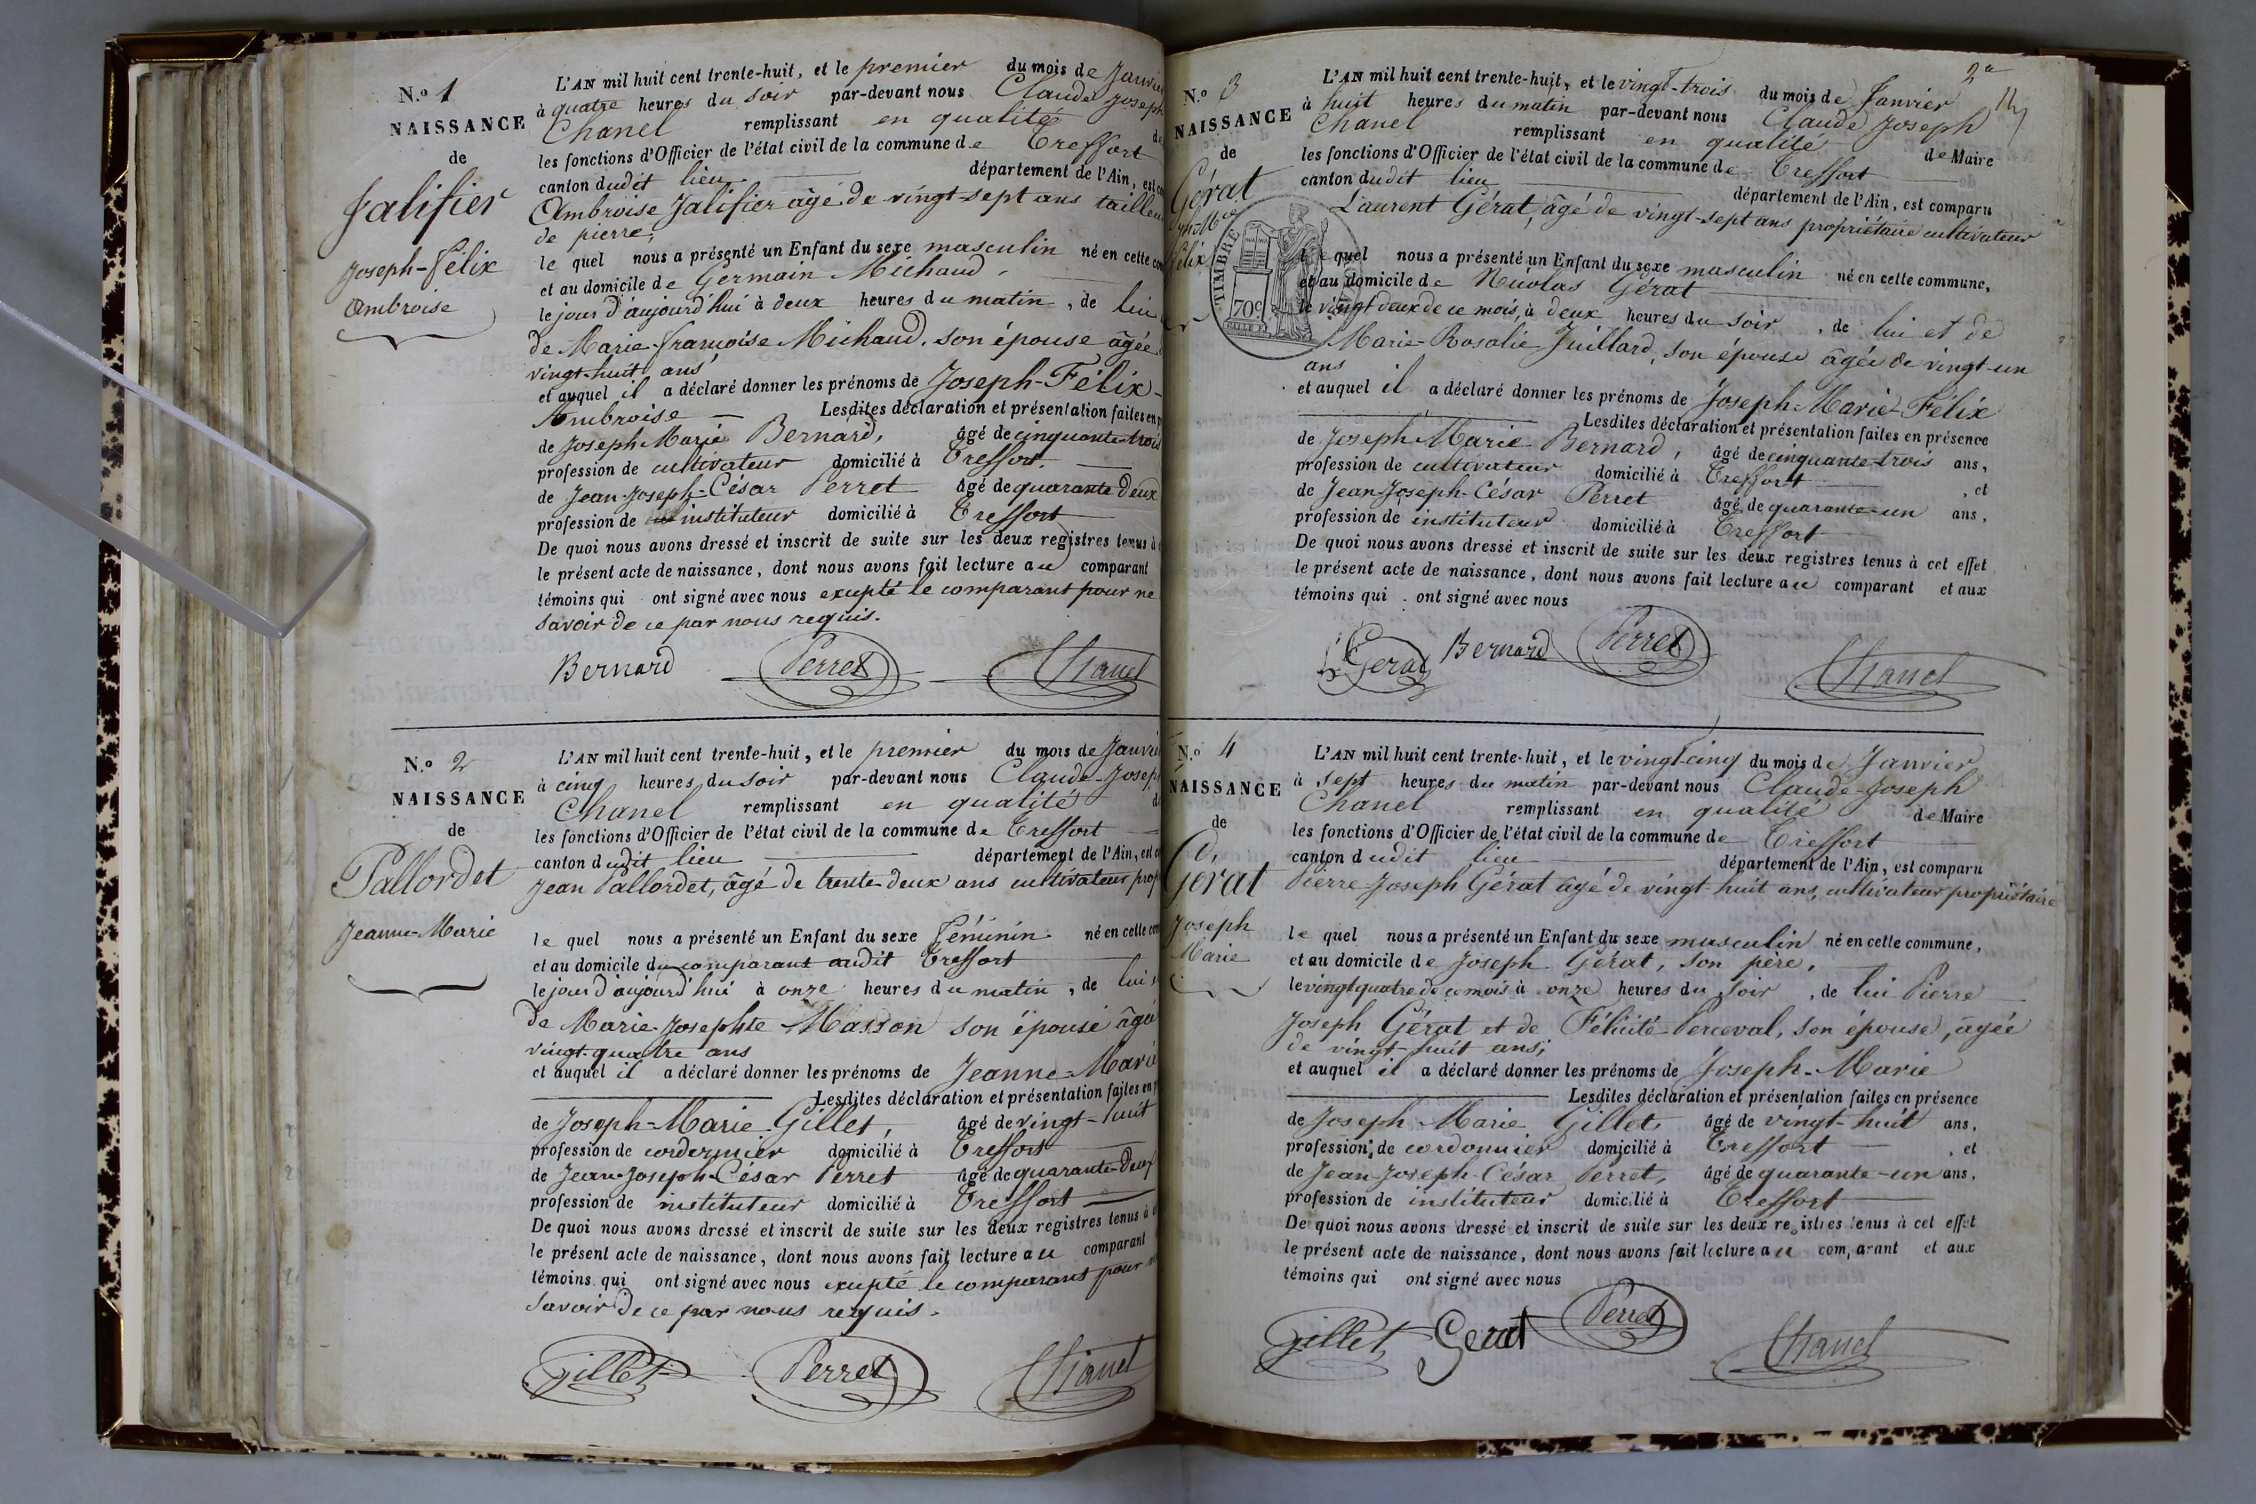 N.o 1
NAISSANCE
de
Jalifier
Joseph-Félix
Ambroise
L'AN mil huit cent trente-huit, et le premier du mois de Janvier
à quatre heures du soir par-devant nous Claude Joseph
Chanel remplissant en qualité de
les fonctions d'Officier de l'état civil de la commune de Treffort
canton dudit lieu département de l'Ain, est
Ambroise Jalifier âgé de vingt-sept ans tailleur
de pierre,
lequel nous a présenté un Enfant du sexe masculin né en cette
et au domicile de Germain Michaud,
le jour d'aujourd'hui à deux heures du matin, de lui
de Marie-françoise Michaud, son épouse âgée
vingt-huit ans
et auquel il a déclaré donner les prénoms de Joseph-Félix-
Ambroise Lesdites déclaration et présentation faites en
de Joseph Marie Bernard, âgé de cinquante-trois
profession de cultivateur domicilié à Treffort,
de Jean-Joseph-César Perret âgé de quarante-deux
profession de instituteur domicilié à Treffort
De quoi nous avons dressé et inscrit de suite sur les deux registres tenus à
le présent acte de naissance, dont nous avons fait lecture au comparant
témoins qui ont signé avec nous excepté le comparant pour ne
savoir de ce par nous requis.
Bernard Perret Chanel
N.o 2
NAISSANCE
de
Pallordet
Jeanne-Marie
L'AN mil huit cent trente-huit, et le premier du mois de Janvier
à cinq heures du soir par-devant nous Claude-Joseph
Chanel remplissant en qualité de
les fonctions d'Officier de l'état civil de la commune de Treffort
canton dudit lieu département de l'Ain, est
Jean Pallordet, âgé de trente-deux ans cultivateur prop
lequel nous a présenté un Enfant du sexe Féminin né en cette
et au domicile du comparant audit Treffort
le jour d'aujourd'hui à onze heures du matin, de lui
de Marie-Josephte Masson son épouse âgée
vingt-quatre ans
et auquel il a déclaré donner les prénoms de Jeanne-Marie
Lesdites déclaration et présentation faites en
de Joseph-Marie Gillet, âgé de vingt-huit
profession de cordonnier domicilié à Treffort
de Jean-Joseph-César Perret âgé de quarante-deux
profession de instituteur domicilié à Treffort
De quoi nous avons dressé et inscrit de suite sur les deux registres tenus à
le présent acte de naissance, dont nous avons fait lecture au comparant
témoins qui ont signé avec nous excepté le comparant pour
savoir de ce par nous requis.
Gillet Perret Chanel
2e
N.o 3
NAISSANCE
de
Gérat
Jph Mie
Félix
TIMBRE ROYAL
70c
L'AN mil huit cent trente-huit, et le vingt-trois du mois de Janvier
à huit heures du matin par-devant nous Claude Joseph
Chanel remplissant en qualité de Maire
les fonctions d'Officier de l'état civil de la commune de Treffort
canton dudit lieu département de l'Ain, est comparu
Laurent Gérat, âgé de vingt-sept ans propriétaire cultivateur
lequel nous a présenté un Enfant du sexe masculin né en cette commune,
et au domicile de Nicolas Gérat
le vingt deux de ce mois, à deux heures du soir, de lui et de
Marie-Rosalie Juillard, son épouse âgée de vingt-un
ans
et auquel il a déclaré donner les prénoms de Joseph-Marie-Félix
Lesdites déclaration et présentation faites en présence
de Joseph Marie Bernard, âgé de cinquante-trois ans,
profession de cultivateur domicilié à Treffort, et
de Jean-Joseph-César Perret âgé de quarante-un ans,
profession de instituteur domicilié à Treffort
De quoi nous avons dressé et inscrit de suite sur les deux registres tenus à cet effet
le présent acte de naissance, dont nous avons fait lecture au comparant et aux
témoins qui ont signé avec nous
L Gerat Bernard Perret Chanel
N.o 4
NAISSANCE
de
Gérat
Joseph
Marie
L'AN mil huit cent trente-huit, et le vingt-cinq du mois de Janvier
à sept heures du matin par-devant nous Claude-Joseph
Chanel remplissant en qualité de Maire
les fonctions d'Officier de l'état civil de la commune de Treffort
canton dudit lieu département de l'Ain, est comparu
Pierre-Joseph Gérat âgé de vingt-huit ans, cultivateur propriétaire
lequel nous a présenté un Enfant du sexe masculin né en cette commune,
et au domicile de Joseph Gérat, son père,
le vingt quatre de ce mois à onze heures du soir, de lui Pierre
Joseph Gérat et de Félicité Perceval, son épouse, âgée
de vingt-huit ans;
et auquel il a déclaré donner les prénoms de Joseph-Marie
Lesdites déclaration et présentation faites en présence
de Joseph-Marie Gillet, âgé de vingt-huit ans,
profession de cordonnier domicilié à Treffort, et
de Jean-Joseph-César Perret, âgé de quarante-un ans,
profession de instituteur domicilié à Treffort
De quoi nous avons dressé et inscrit de suite sur les deux registres tenus à cet effet
le présent acte de naissance, dont nous avons fait lecture au comparant et aux
témoins qui ont signé avec nous
Gillet Gerat Perret Chanel